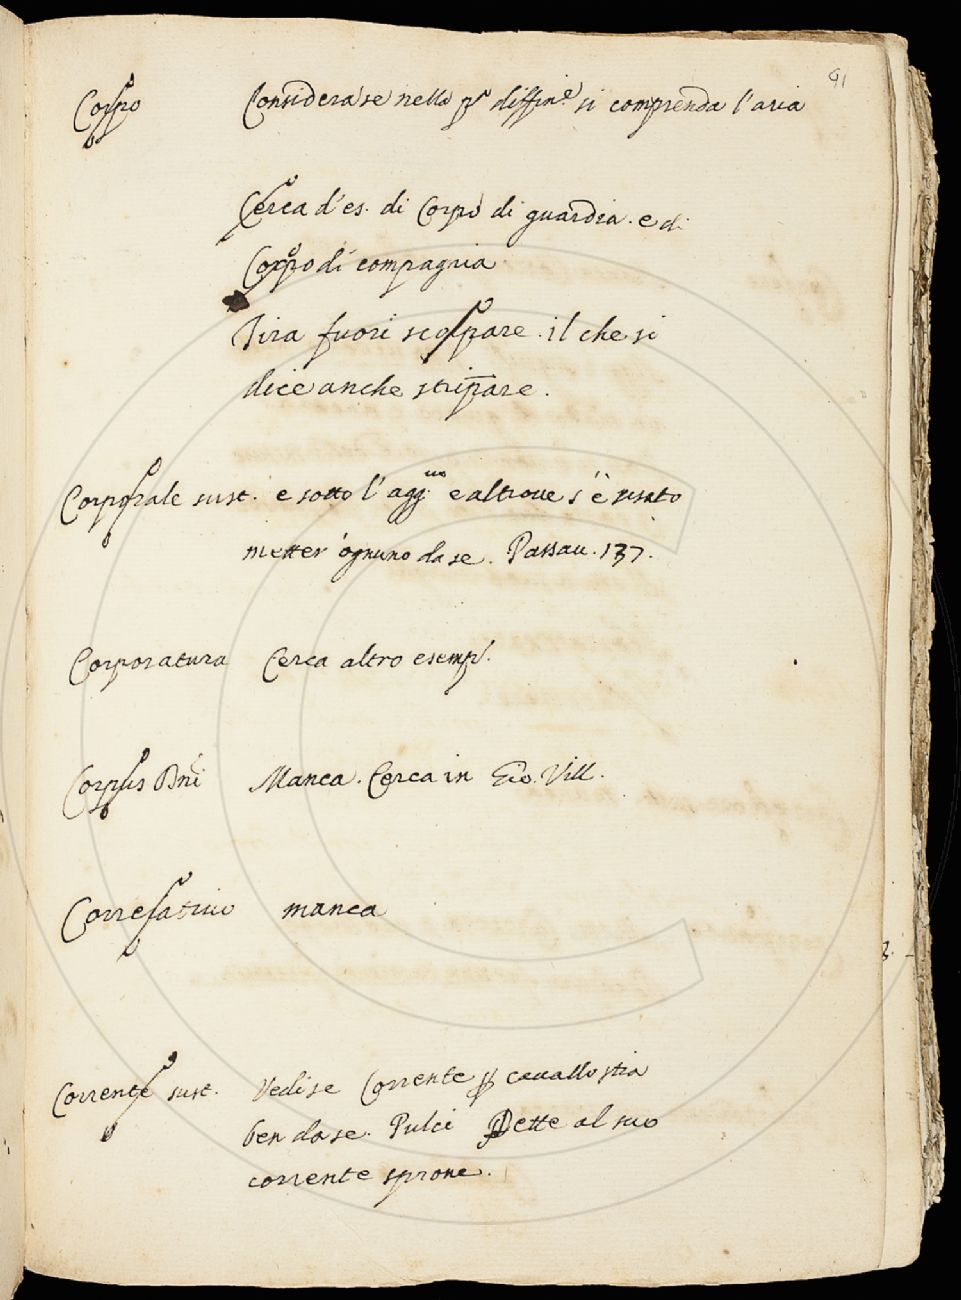 91
Corpo Considera se nella pa diffine si comprenda l'aria
Cerca d'es. di Corpo di guardia. e di
Corpo di compagnia
Tira fuori scorpare. il che si
dice anche stripare.
Corporale sust. e sotto l'agg.uo e altroue s'è usato
metter'ognuno da se. Passau. 137.
Corporatura Cerca altro esemp.
Corpus Dni Manca. Cerca in Gio. Vill.
Correlatiuo manca
Corrente sust. Vedi se Corrente p cauallo stia
ben da se. Pulci Dette al suo
corrente sprone.